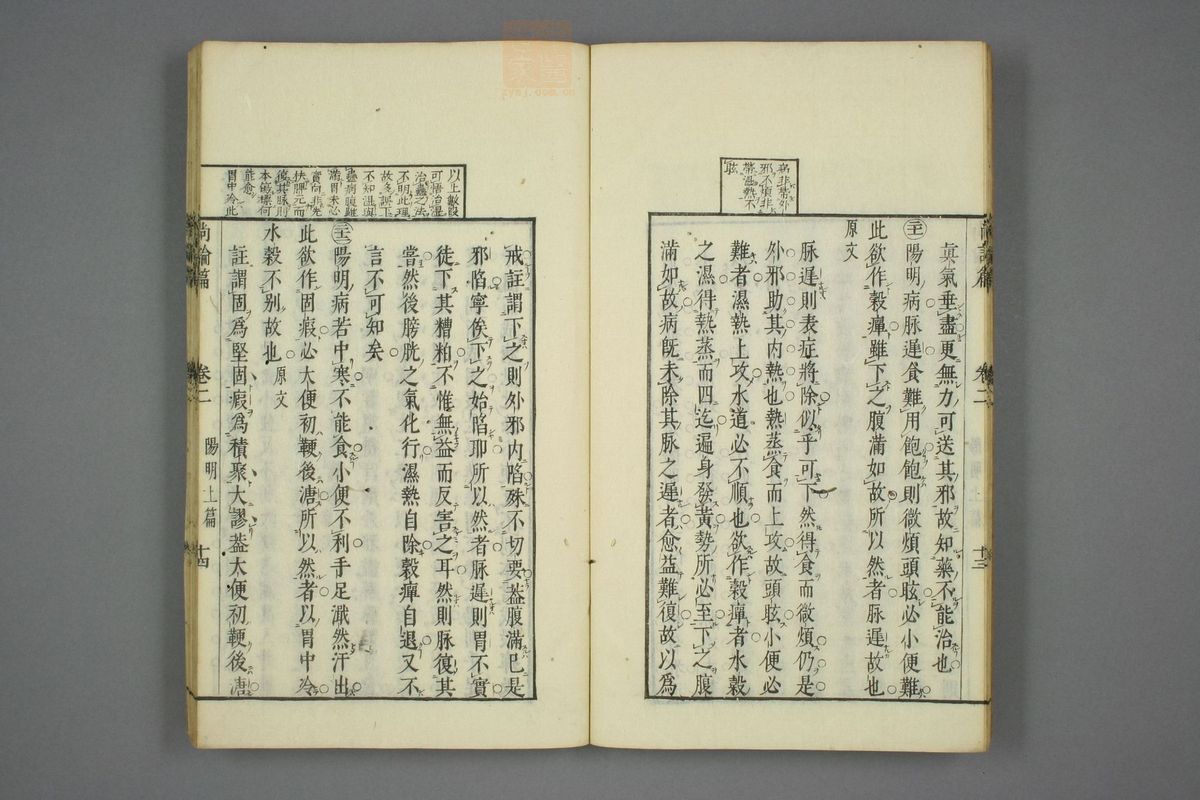 眞氣垂盡更無力可送其邪故知藥不能治也
陽明病脉遲食難用飽飽則微煩頭眩必小便難
此欲作穀癉雖下之腹滿如故所以然者脉遲故也
原文
脉遲則表症將除似乎可下然得食而微煩仍是
外邪助其内熱也熱蒸食而上攻故頭眩小便必
難者濕熱上攻水道必不順也欲作穀癉者水穀
之濕得熱蒸而四迄遍身發黄勢所必至下之腹
滿如故病旣未除其脉之遲者愈益難復故以爲
卷二
陽明上篇
十三
戒註謂下之則外邪内陷殊不切要葢腹滿已是
邪陷寧俟下之始陷耶所以然者脉遲則胃不實
徒下其糟粕不惟無益而反害之耳然則脉復其
當然後膀胱之氣化行濕熱自除穀癉自退又不
言不可知矣
陽明病若中寒不能食小便不利手足濈然汗出
此欲作固瘕必大便初鞕後溏所以然者以胃中冷
水穀不别故也
原文
註謂固爲堅固瘕爲積聚大謬葢大便初鞕後溏
以上數段
可悟治濕
治蟲之法
不明此理
故多誤下
不知濕與
滿胃未必
實向非先
扶脾元而
復其脉則
本
能愈
胃中冷此
尚論篇
卷二
陽明上篇
十四
zysj.com.cn